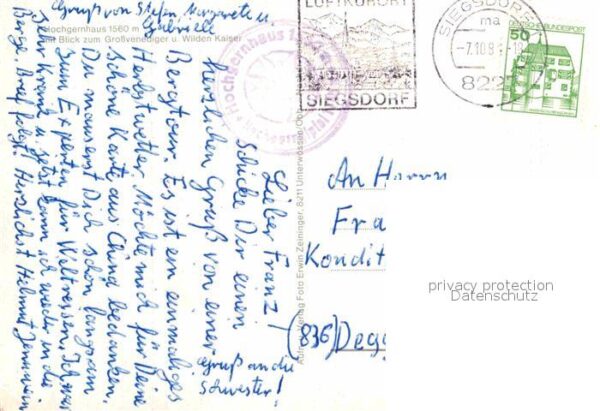 Gruß von Stefan, Margarete u.
Gabriele
Hochgernhaus 1560 m
mit Blick zum Großvenediger u. Wilden Kaiser
Lieber Franz!
Schicke Dir einen
herzlichen Gruß von einer
Bergtour. Es ist ein einmaliges
Herbstwetter. Möchte mich für Deine
schöne Karte aus China bedanken.
Du mauserst Dich schon langsam
zum Experten für Weltreisen. Ich war
sehr krank u. jetzt kann ich wieder in die
Berge. Brief folgt! Herzlichst Helmut
Gruß an die
Schwester!
Hochgernhaus
Verlag Foto Erwin Zeininger, 8211 Unterwössen/Obb.
LUFTKURORT
SIEGSDORF
SIEGSDORF
ma
-7.10.8
8227
50
DEUTSCHE BUNDESPOST
An Herrn
Fra
Kondit
(836) Degg
privacy protection
Datenschutz